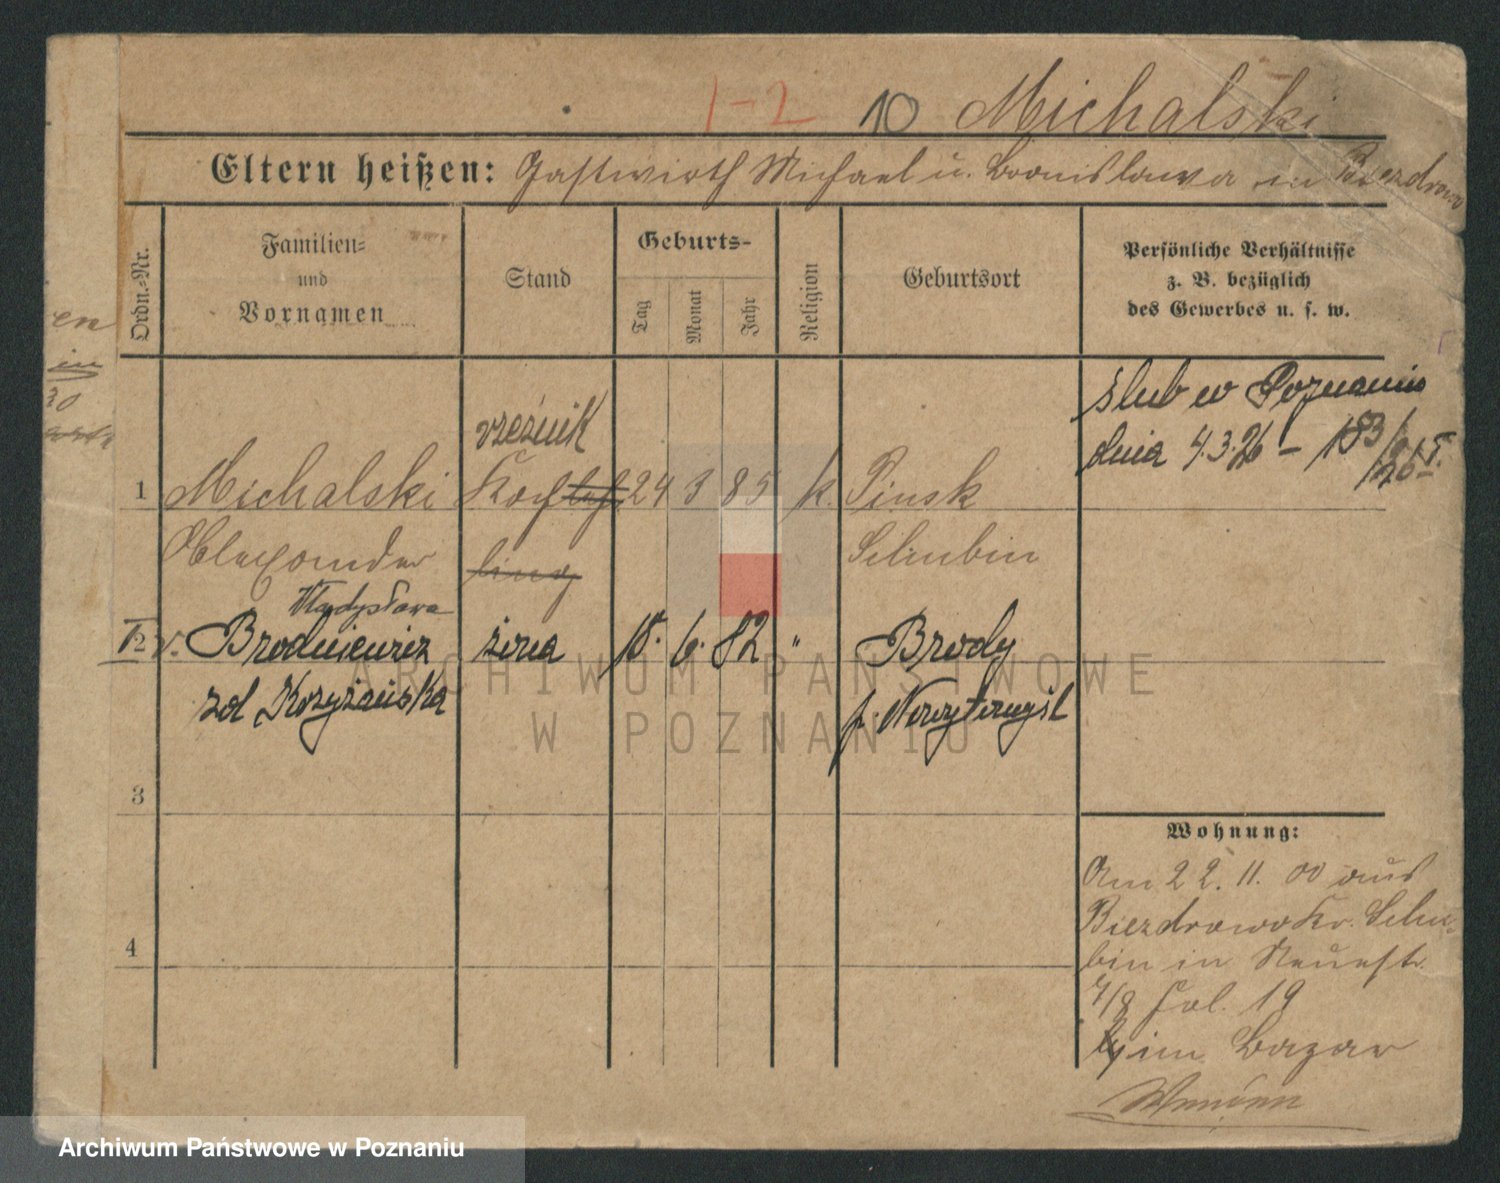 1-2 10 Michalski
Eltern heißen: Gastwirth Michael u. Bronislawa in Biezdrowo
Ordn.-Nr.
Familien-
und
Vornamen
Stand
Geburts-
Tag
Monat
Jahr
Religion
Geburtsort
Persönliche Verhältnisse
z. B. bezüglich
des Gewerbes u. s. w.
en
in
30
ślub w Poznaniu
dnia 4.3.26 - 183/
/26
rzeźnik
1 Michalski Koch 24 3 85 k. Pinsk
Alexander ling Schubin
Władysława
2 v. Brodniewicz żona 15. 6. 82 " Brody
zd Kozyżańska p. Nowytomyśl
3
4
Wohnung:
Am 22. 11. 00 aus
Biezdrowo Kr. Schu-
bin in Neuestr.
7/8 Fol. 19
im Bazar
ARCHIWUM PAŃSTWOWE
W POZNANIU
Archiwum Państwowe w Poznaniu